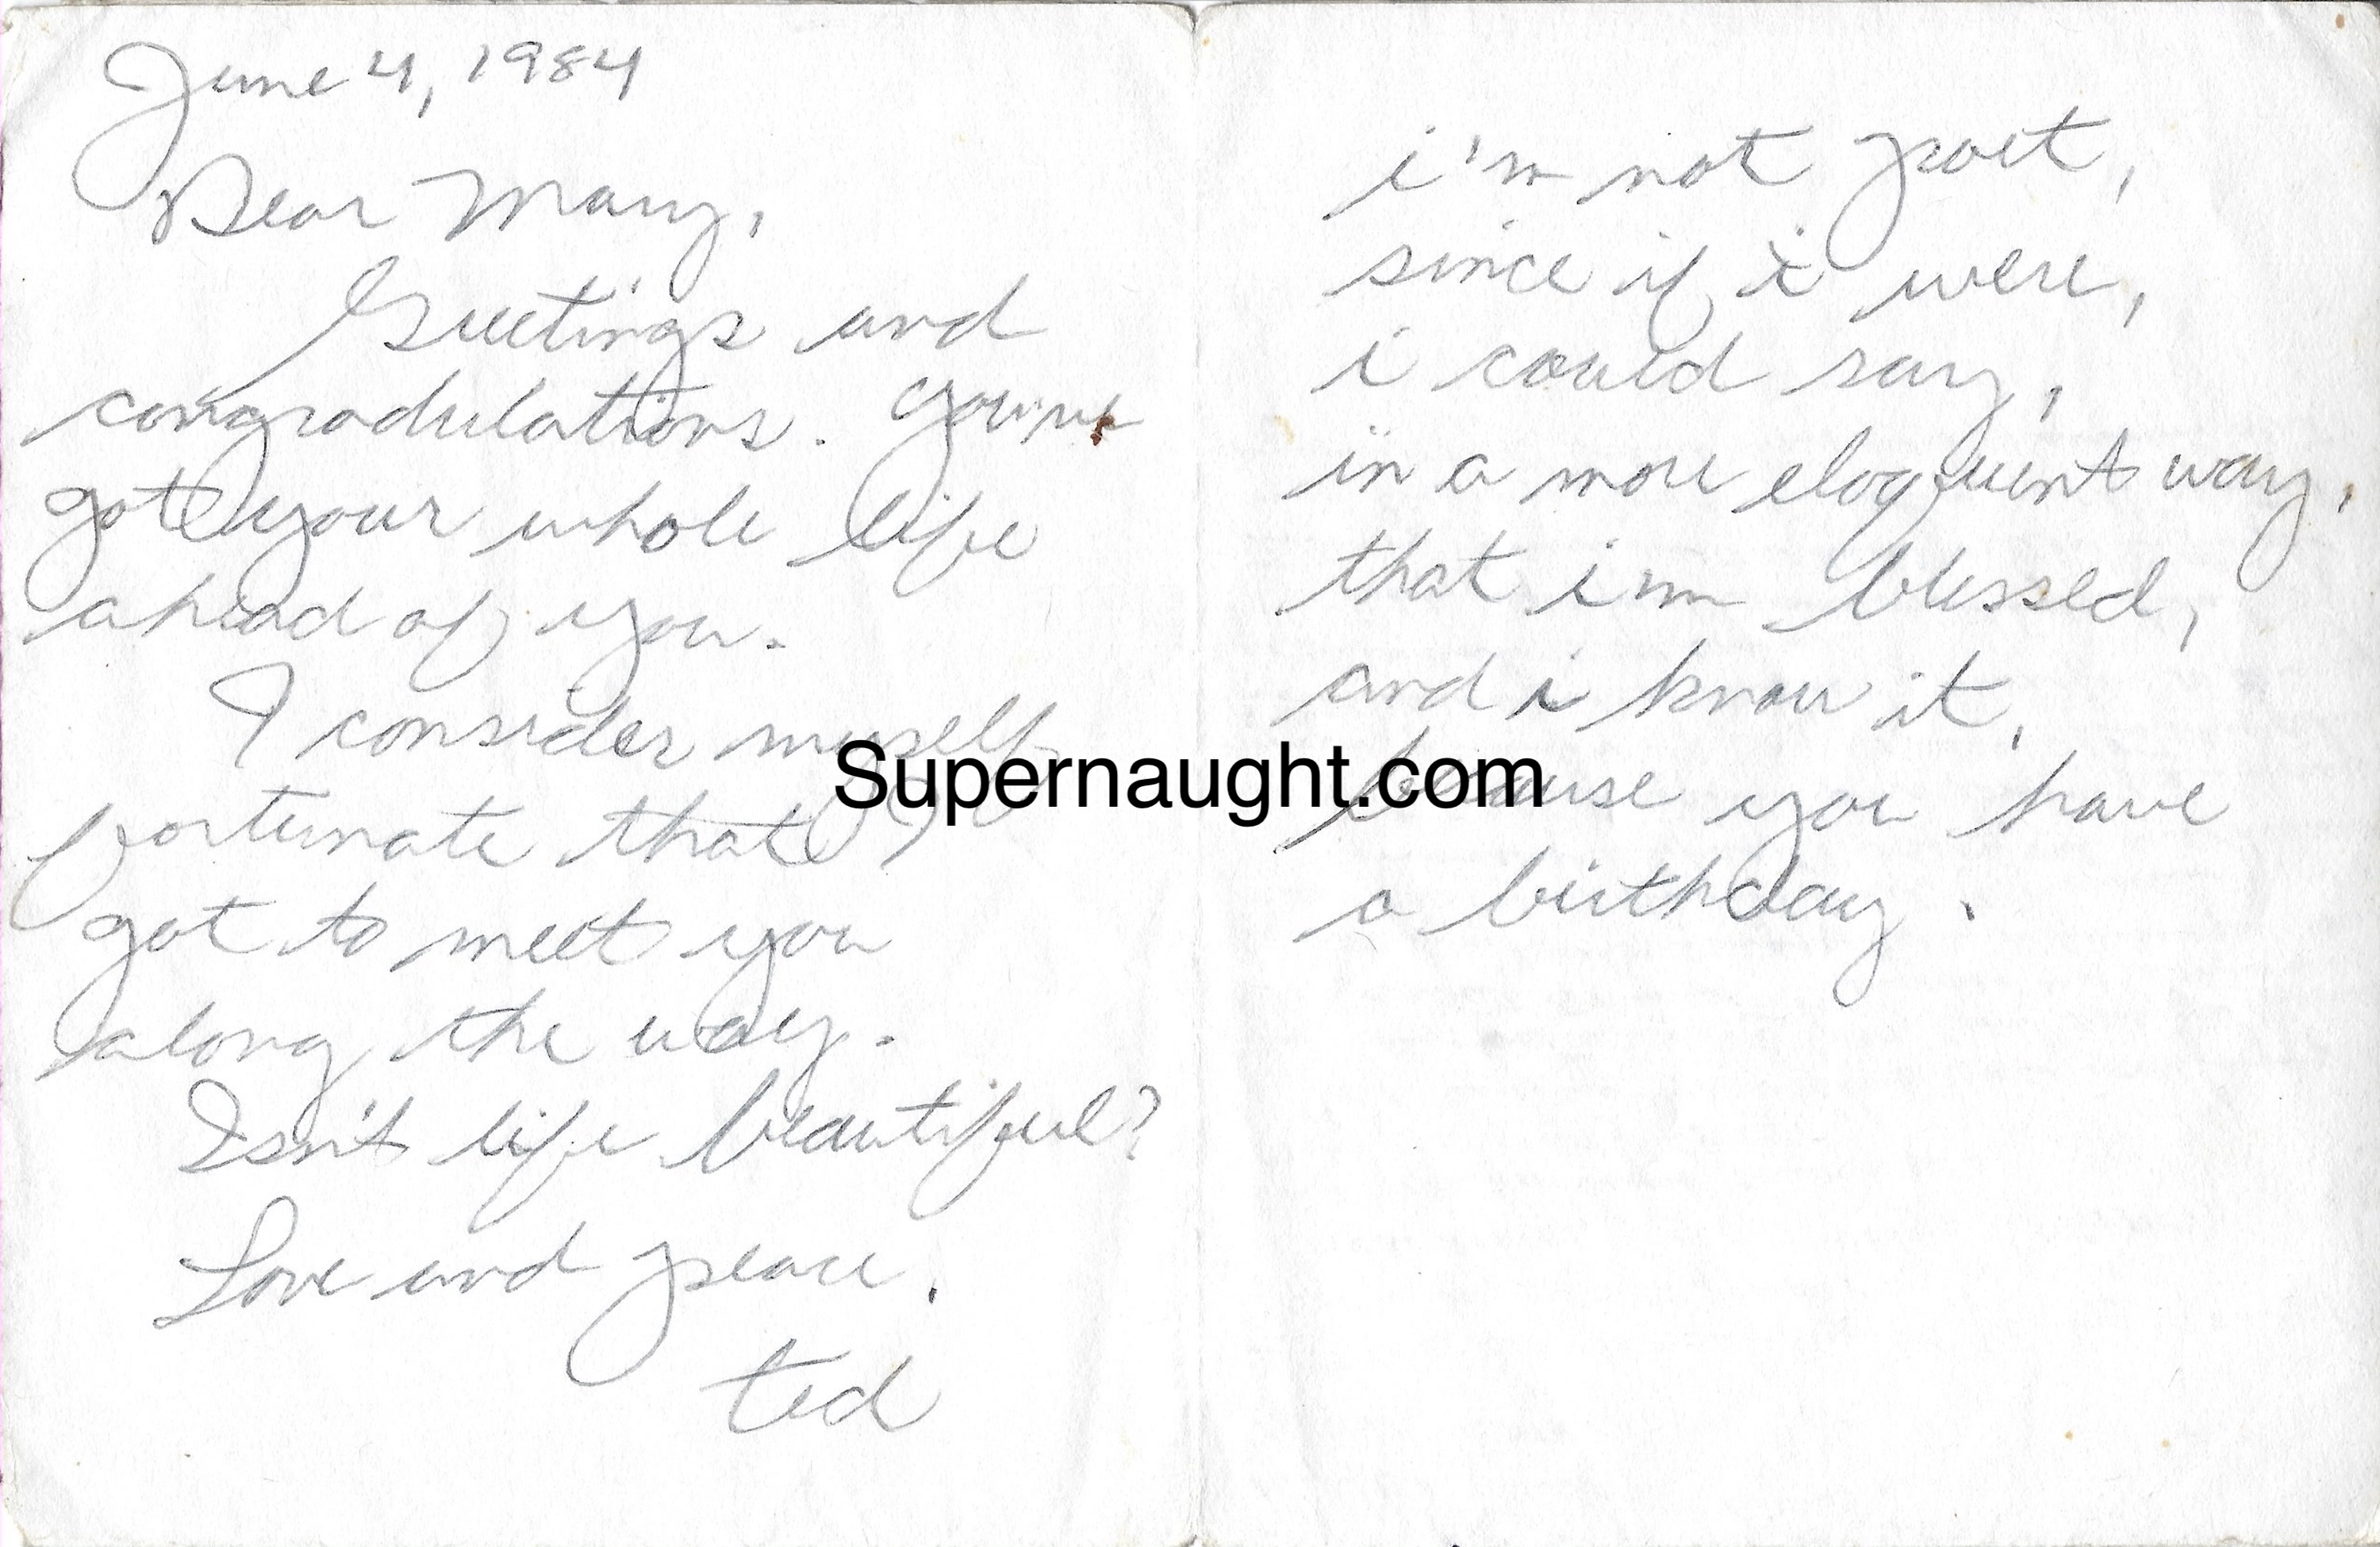 June 4, 1984
Dear Mary,
Greetings and
congradulations. You've
got your whole life
ahead of you.
I consider myself
fortunate that I
got to meet you
along the way.
Isn't life beautiful?
Love and peace,
ted
i'm not poet,
since if i were,
i could say,
in a more eloquent way,
that im blessed,
and i know it,
because you have
a birthday.
Supernaught.com